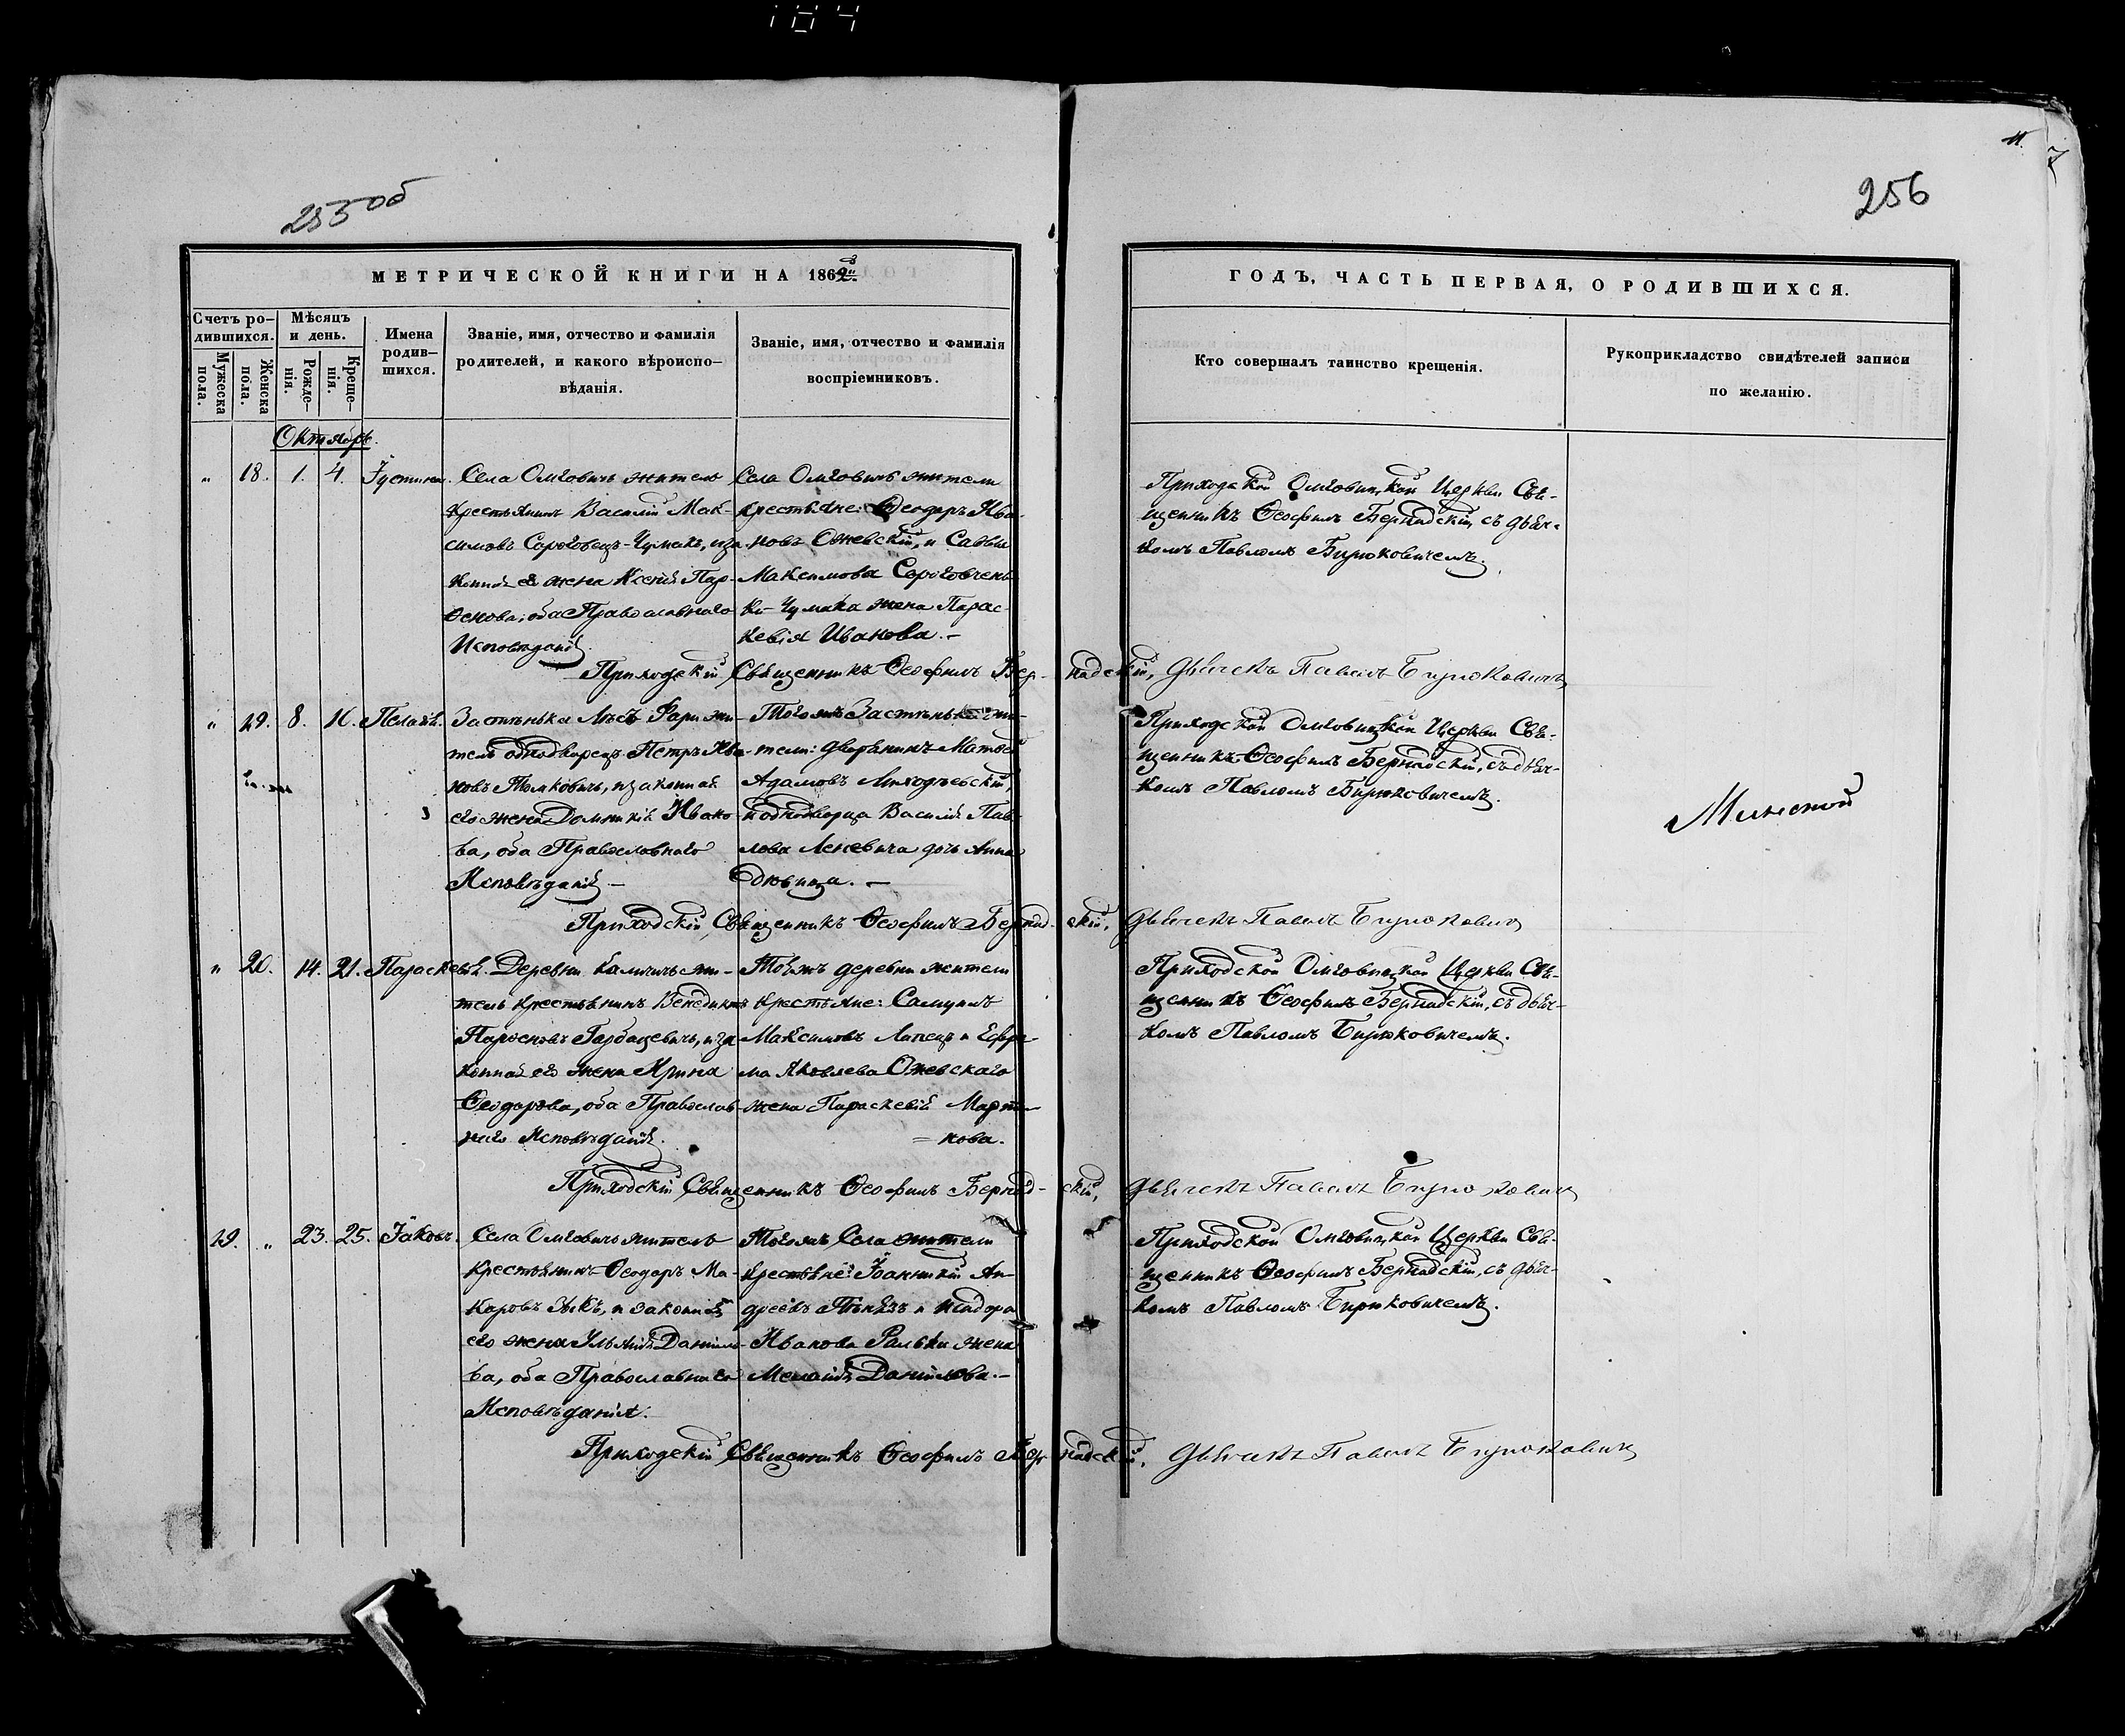 184
11.
7
255 об
256
МЕТРИЧЕСКОЙ КНИГИ НА 1862
ГОДЪ, ЧАСТЬ ПЕРВАЯ, О РОДИВШИХСЯ.
Счетъ ро-
дившихся.
Мужеска
пола.
Женска
пола.
Мѣсяцъ
и день.
Рожде-
нія.
Креще-
нія.
Имена
родив-
шихся.
Званіе, имя, отчество и фамилія
родителей, и какого вѣроиспо-
вѣданія.
Званіе, имя, отчество и фамилія
воспріемниковъ.
Кто совершалъ таинство крещенія.
Рукоприкладство свидѣтелей записи
по желанію.
Октябрь.
" 18. 1. 4. Іустина.
Села Омговичъ житель
крестьянинъ Василій Мак-
симовъ Сороговецъ-Чумакъ, и за
конная его жена Ксенія Пар-
ѳенова, оба Православнаго
Исповѣданія.
Села Омговичъ жители
крестьяне: Ѳеодоръ Ива-
новъ Ожевскій, и Саввы
Максимова Сороговчен-
ка-Чумака жена Парас-
кевія Иванова.-
Приходской Омговицкой Церкви Свя-
щенникъ Ѳеофилъ Бернадскій, съ дьяч-
комъ Павломъ Бирюковичемъ.
Приходскій Священникъ Ѳеофилъ Бер-надскій, Дьячекъ Павелъ Бирюковичъ
" 19. 8. 16. Пелагія.
Застѣнька Лясъ Фари жи-
тель однодворецъ Петръ Ива-
новъ, и законная
его жена Домникія Иако-
ва, оба Православнаго
Исповѣданія -
Тогожъ Застѣнька жи-
тели: дворянинъ Матѳей
Адамовъ,
и однодворца Василія Пав-
лова дочь Анна
дѣвица. -
Приходской Омговицкой Церкви Свя-
щенникъ Ѳеофилъ Бернадскій, съ дьяч-
комъ Павломъ Бирюковичемъ.
Минской
Приходскій Священникъ Ѳеофилъ Бернад-скій, Дьячекъ Павелъ Бирюковичъ
" 20. 14. 21. Параскевія.
Деревни Калиничъ жи-
тель крестьянинъ Венедиктъ
Парѳеновъ Горбацевичъ, и за
конная его жена Ирина
Ѳеодорова, оба Православ-
наго Исповѣданія.
Тоежъ деревни жители
крестьяне: Самуилъ
Максимовъ Лапецъ и Ефре-
ма Яковлева Ожевскаго
жена Параскевія Марти-
= нова.
Приходской Омговицкой Церкви Свя-
щенникъ Ѳеофилъ Бернадскій, съ дьяч-
комъ Павломъ Бирюковичемъ.
Приходскій Священникъ Ѳеофилъ Бернад-скій, Дьячекъ Павелъ Бирюковичъ
19. " 23. 25. Іаковъ.
Села Омговичъ житель
крестьянинъ Ѳеодоръ Ма-
каровъ, и законная
его жена Ульянія Данило-
ва, оба Православнаго
Исповѣданія.
Тогожъ Села жители
крестьяне: Іоанникій Ан-
дреевъ и Исидора
Иванова жена
Меланія Данилова.-
Приходской Омговицкой Церкви Свя-
щенникъ Ѳеофилъ Бернадскій, съ дьяч-
комъ Павломъ Бирюковичемъ.
Приходскій Священникъ Ѳеофилъ Бер-надскій, Дьячекъ Павелъ Бирюковичъ